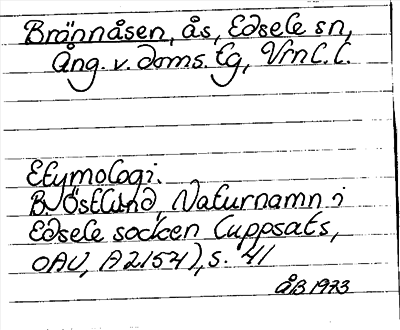 Brännåsen, ås, Edsele sn,
Ång. v. doms. lg, Vrnl. l.
Etymologi.
B. Östlund, Naturnamn i
Edsele socken (uppsats,
OAU, A2157), s. 41
ÅB 1973